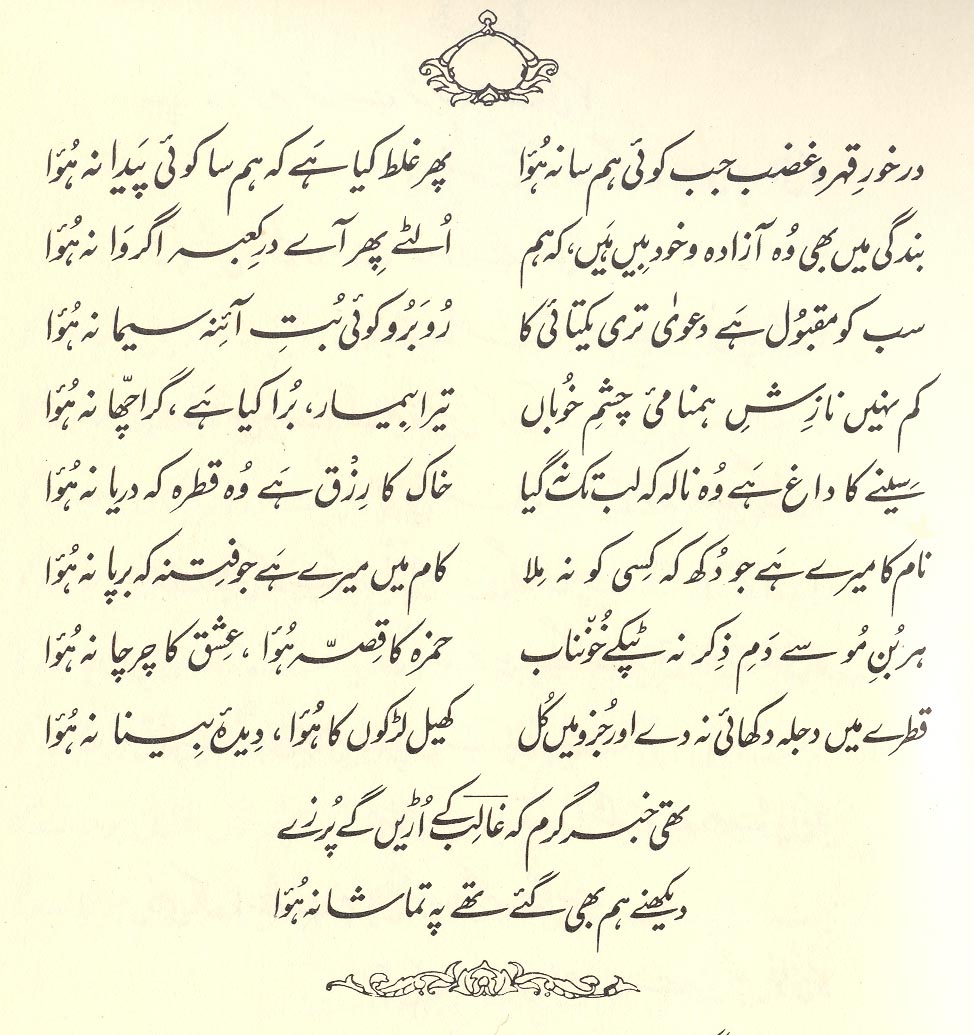 درخورِ قہر و غضب جب کوئی ہم سا نہ ہُوٴا پھر غلط کیا ہَے کہ ہم سا کوئی پَیدا نہ ہُوٴا
بندگی میں بھی وُہ آزادہ و خود بِیں ہَیں، کہ ہم اُلٹے پِھر آے درِ کعبہ اگر وَا نہ ہُوٴا
سب کو مقبُول ہَے دعویٰ تری یکتائی کا رُوبَرُو کوئی بُتِ آئِنہ سیما نہ ہُوٴا
کم نہیں نازِشِ ہمنامیٔ چشمِ خُوباں تیرا بیمار، بُرا کیا ہَے، گر اچّھا نہ ہُوٴا
سِینے کا داغ ہَے وُہ نالہ کہ لب تک نہ گیا خاک کا رِزْق ہَے وُہ قطرہ کہ دریا نہ ہُوٴا
نام کا میرے ہَے جو دُکھ کہ کِسی کو نہ مِلا کام میں میرے ہَے جو فِتنہ کہ برپا نہ ہُوٴا
ہر بُنِ مُو سے دَمِ ذِکر نہ ٹپکے خُونناب حمزہ کا قِصّہ ہُوٴا، عِشق کا چرچا نہ ہُوٴا
قطرے میں دجلہ دکھائی نہ دے اور جُزو میں کُل کھیل لڑکوں کا ہُوٴا، دِیدۂ بِینا نہ ہُوٴا
تھی خبر گرم کہ غالبؔ کے اُڑیں گے پُرزے
دیکھنے ہم بھی گئے تھے پہ تماشا نہ ہُوٴا